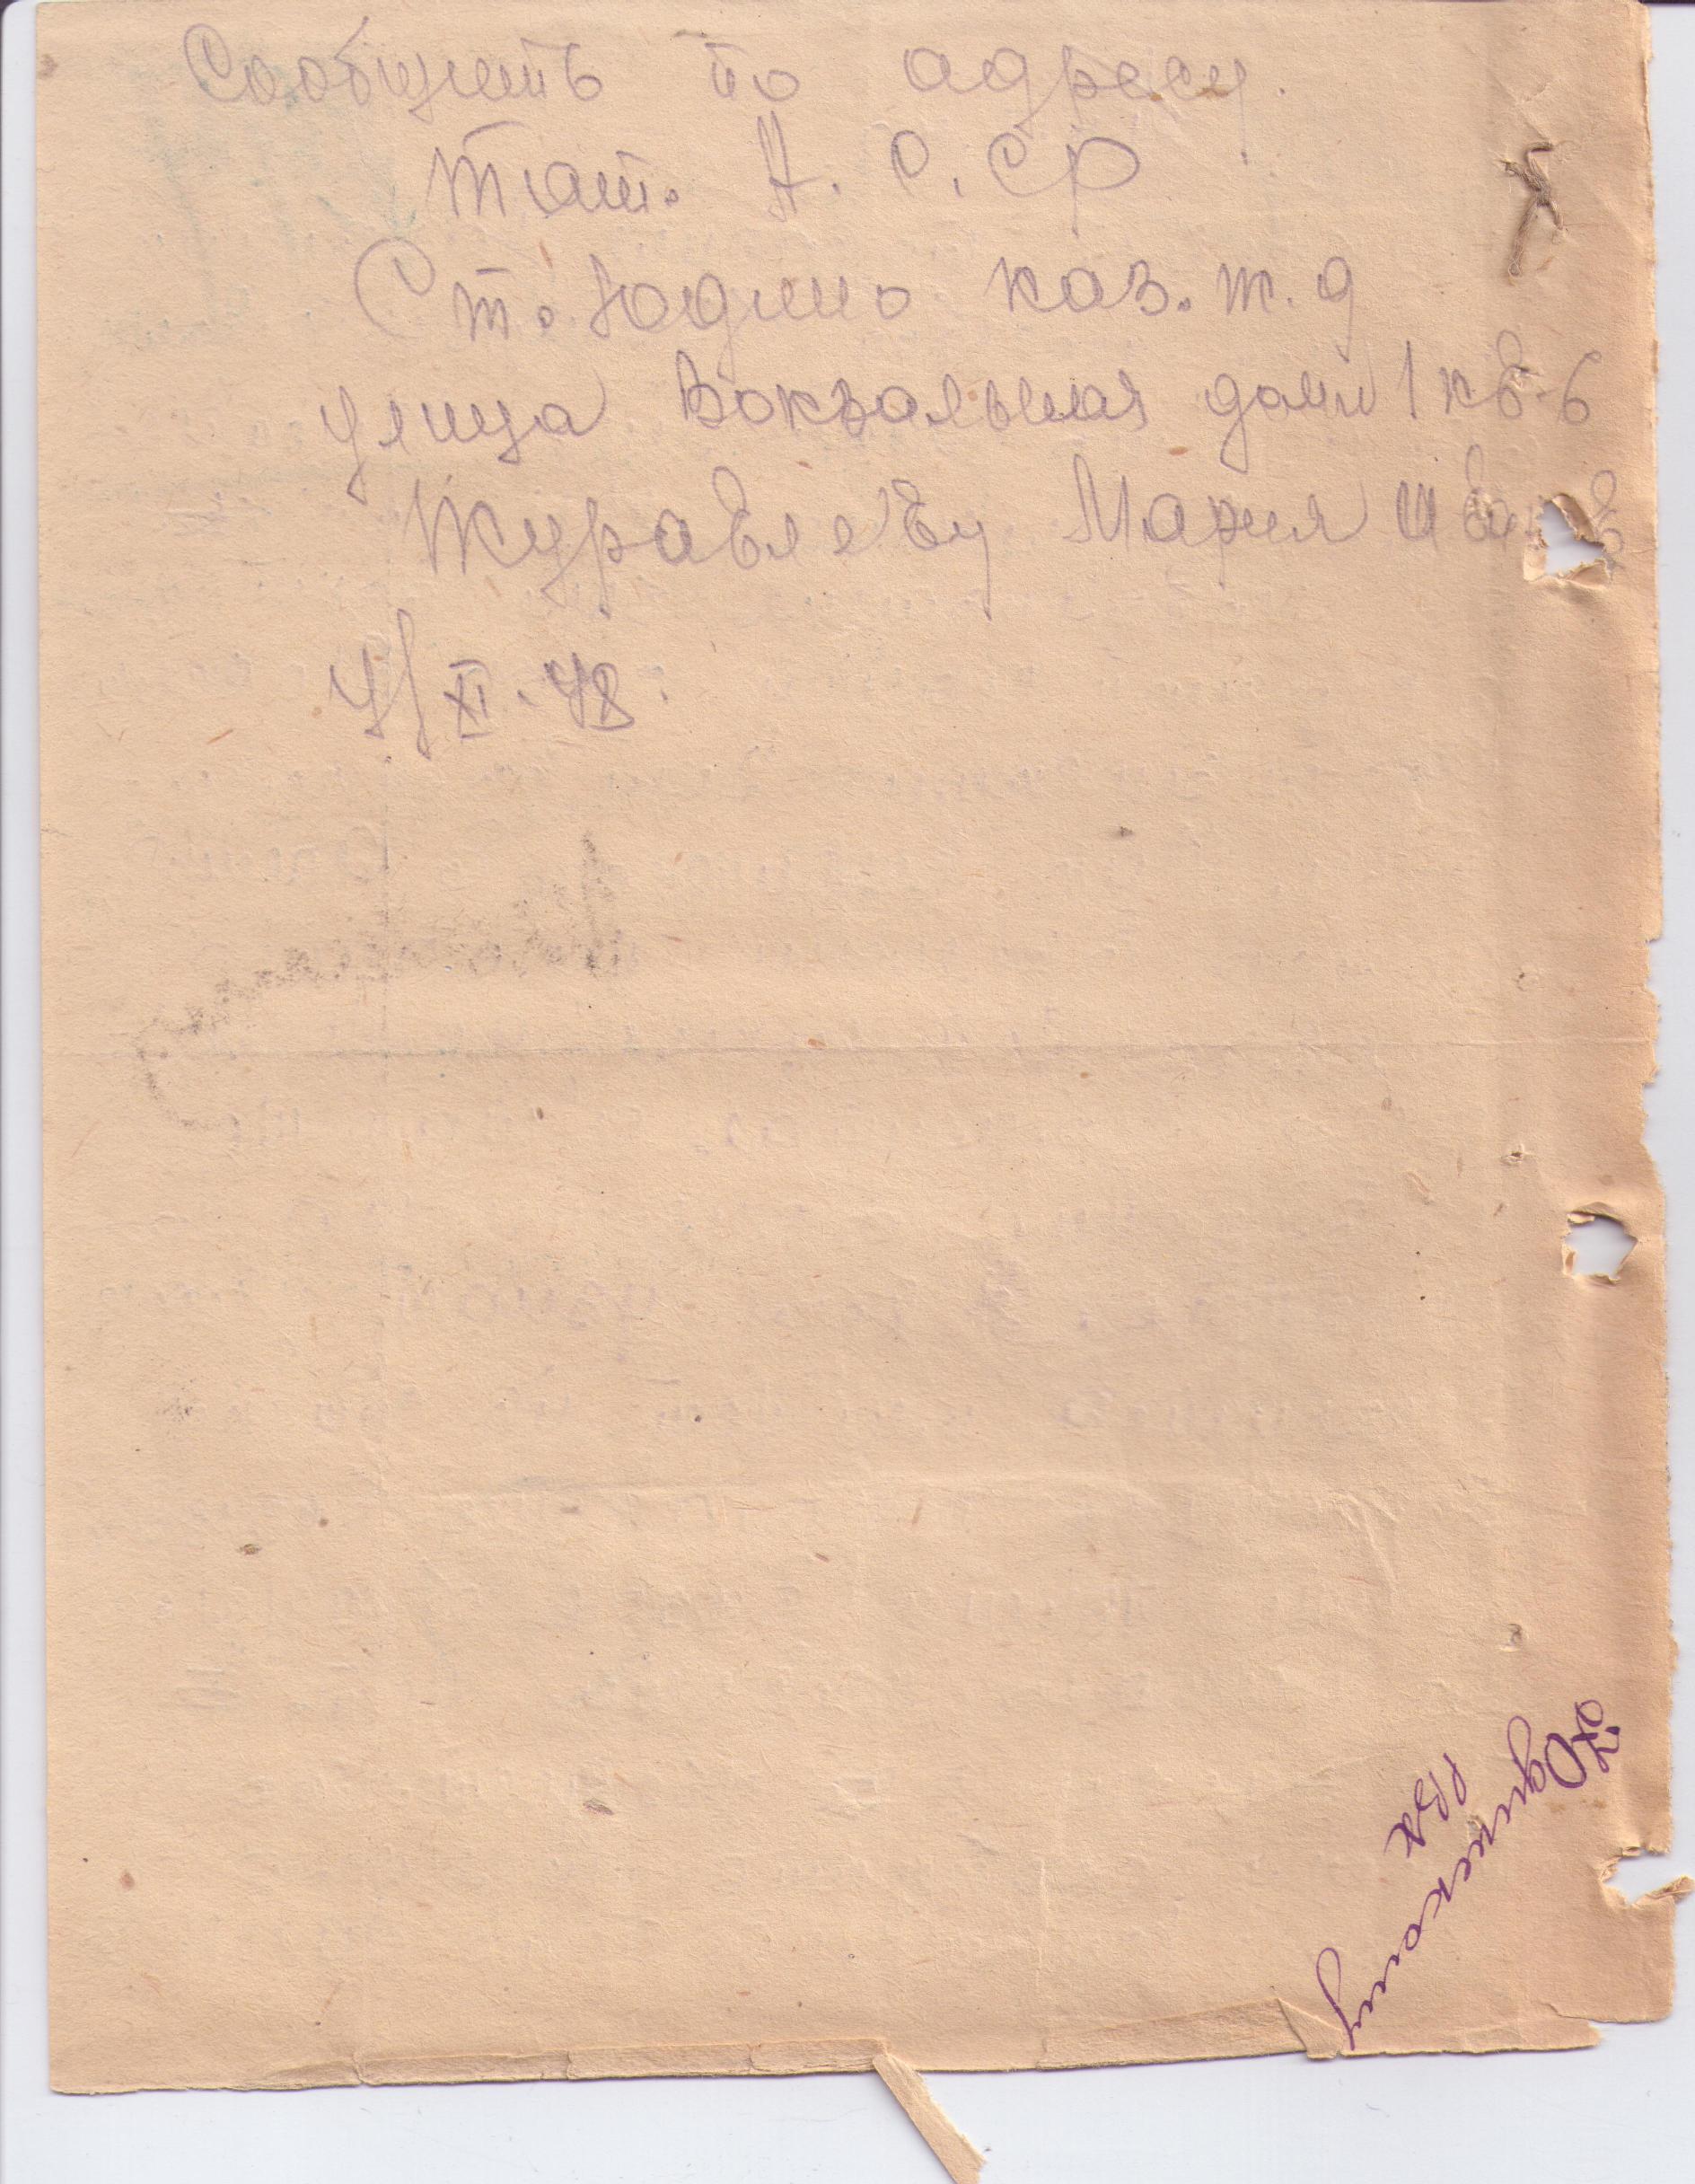 Сообщить по адресу.
Тат. А. С. СР
Ст. Юдино каз. ж. д
улица Вокзальная дом 1 кв-6
Журавлеву Мария
4/XI-48.
Юдинскому
РВК